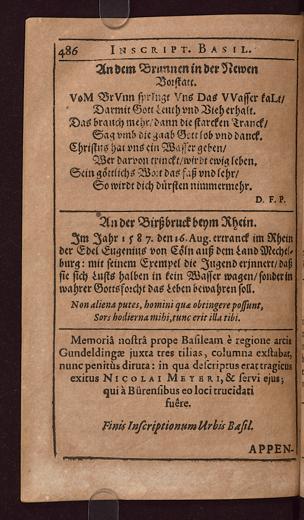 486 INSCRIPT. BASIL.
An dem Brunnen in der Newen
Vorstatt.
VoM BrVnn sprIngt Vns Das VVasser kaLt/
Darmit Gott Leuth vnd Vieh erhalt.
Das brauch mehr/ dann die starcken Tranck/
Sag vmb die gaab Gott lob vnd danck.
Christus hat vns ein Wasser geben/
Wer darvon trinckt/ wirdt ewig leben,
Sein göttlichs Wort das faß vnd lehr/
So wirdt dich dürsten nimmermehr.
D. F. P.
An der Birßbruck beym Rhein.
Im Jahr 1587. den 16. Aug. ertranck im Rhein
der Edel Eugenius von Cöln auß dem Land Mechel-
burg: mit seinem Exempel die Jugend erinnert/ daß
sie sich Lusts halben in kein Wasser wagen/ sonder in
wahrer Gottsforcht das Leben bewahren soll.
Non aliena putes, homini quæ obtingere possunt,
Sors hodierna mihi, tunc erit illa tibi.
Memoriâ nostrâ prope Basileam è regione arcis
Gundeldingæ juxta tres tilias, columna exstabat,
nunc penitùs diruta: in qua descriptus erat tragicus
exitus NICOLAI MEYERI, & servi ejus;
qui à Bürensibus eo loci trucidati
fuêre.
Finis Inscriptionum Urbis Basil.
APPEN-